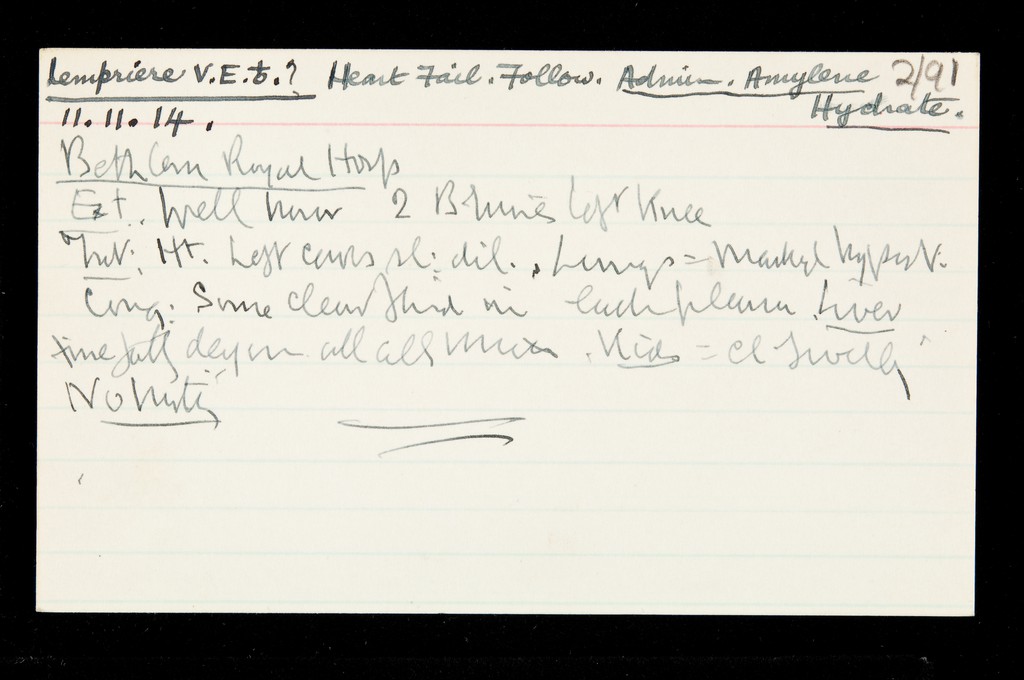 Lempriere V.E.t.? Heart Fail. Follow. Admin. Amylene 2/91
Hydrate.
11.11.14.
Bethlem Royal Hosp
Ext. Well nour 2 Bruises Left Knee
Int: Ht. Left cavs sl: dil., Lungs = Marked hypost:
Cong: Some clear fluid in each pleura. Liver
fine fatty degen all cells. Kids = Cl Swelling
No